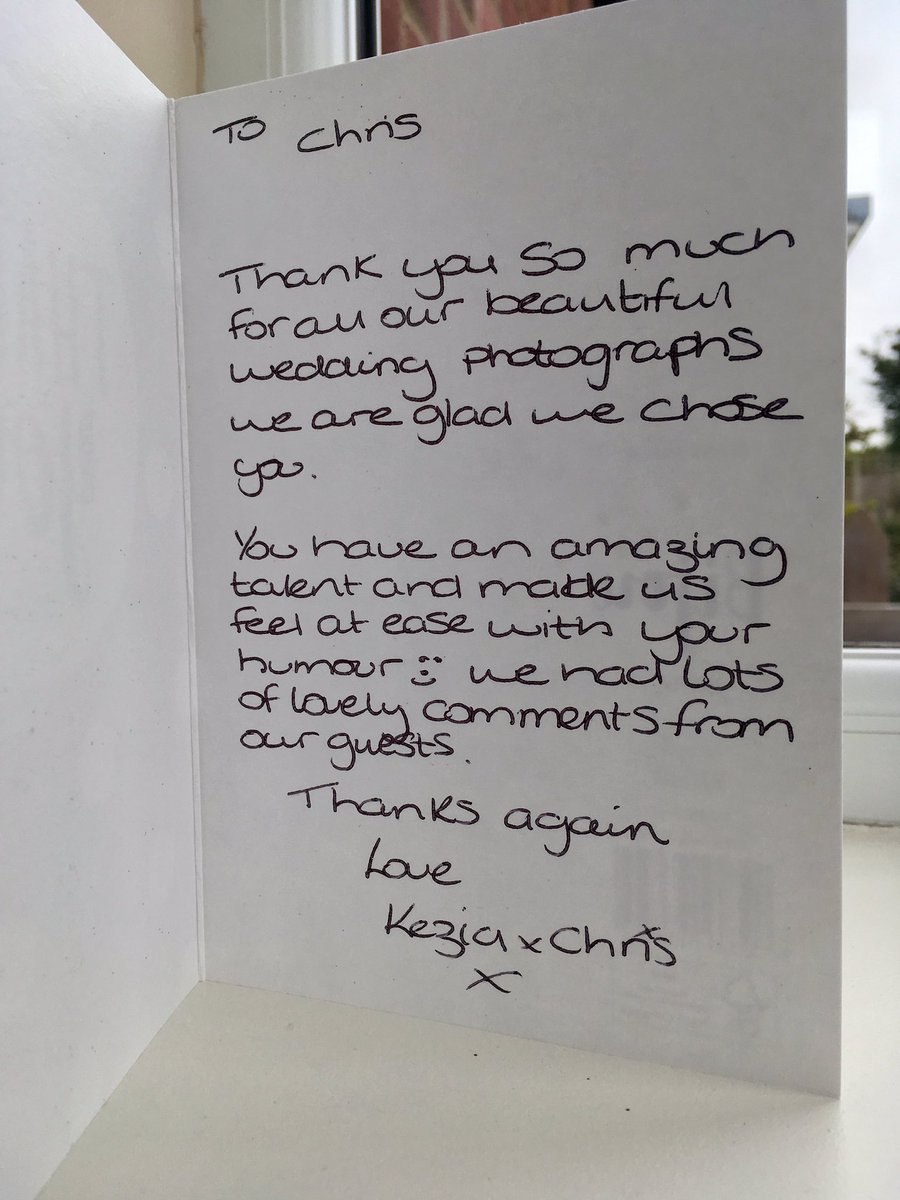 To Chris
Thank you so much
for all our beautiful
wedding photographs
we are glad we chose
you.
You have an amazing
talent and made us
feel at ease with your
humour :) we had lots
of lovely comments from
our guests.
Thanks again
Love
Kezia x Chris
x